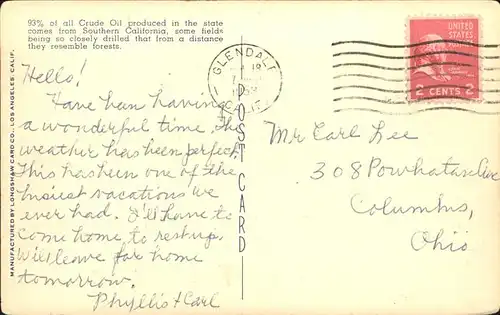 93% of all Crude Oil produced in the state
comes from Southern California, some fields
being so closely drilled that from a distance
they resemble forests.
MANUFACTURED BY LONGSHAW CARD CO., LOS ANGELES, CALIF.
Hello!
Have been having
a wonderful time, the
weather has been perfect.
This has been one of the
busiest vacations we
ever had. I'll have to
come home to rest up.
Will leave for home
tomorrow.
Phyllis + Carl
POST CARD
GLENDALE
CALIF.
UNITED
STATES
POSTAGE
2 CENTS 2
Mr Carl Lee
308 Powhatan Ave
Columbus,
Ohio